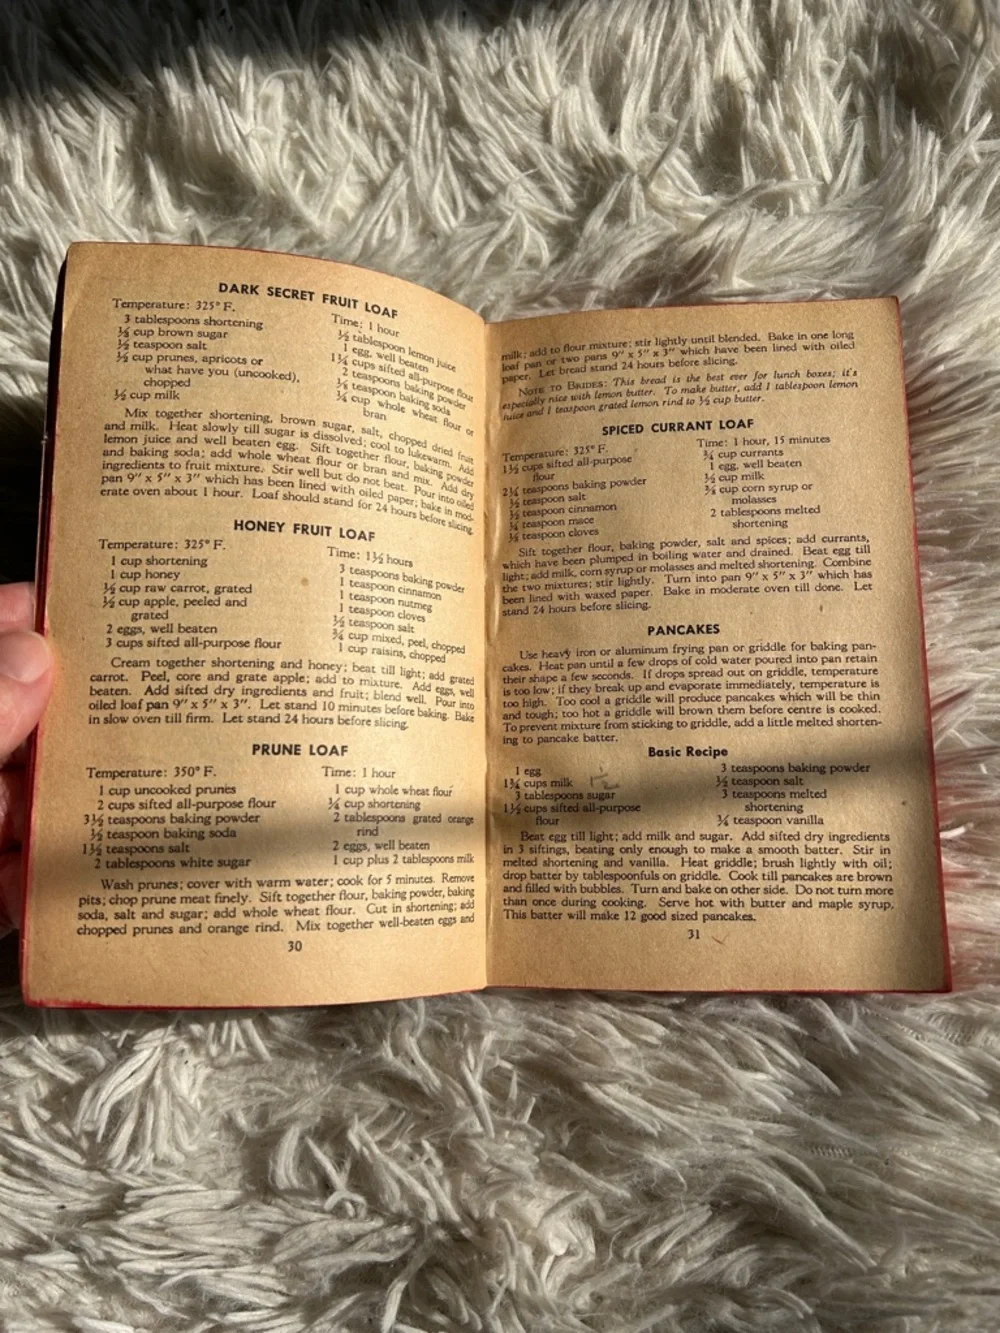 DARK SECRET FRUIT LOAF
Temperature: 325° F.
3 tablespoons shortening
½ cup brown sugar
½ teaspoon salt
½ cup prunes, apricots or
what have you (uncooked),
chopped
½ cup milk
Time: 1 hour
½ tablespoon lemon juice
1 egg, well beaten
1¼ cups sifted all-purpose flour
2 teaspoons baking powder
teaspoon baking soda
cup whole wheat flour or
bran
Mix together shortening, brown sugar, salt, chopped dried fruit
and milk. Heat slowly till sugar is dissolved; cool to lukewarm. Add
lemon juice and well beaten egg. Sift together flour, baking powder
and baking soda; add whole wheat flour or bran and mix. Add dry
ingredients to fruit mixture. Stir well but do not beat. Pour into oiled
pan 9″ x 5″ x 3″ which has been lined with oiled paper; bake in mod-
erate oven about 1 hour. Loaf should stand for 24 hours before slicing.
HONEY FRUIT LOAF
Temperature: 325° F.
1 cup shortening
1 cup honey
½ cup raw carrot, grated
½ cup apple, peeled and
grated
2 eggs, well beaten
3 cups sifted all-purpose flour
Time: 1½ hours
3 teaspoons baking powder
1 teaspoon cinnamon
1 teaspoon nutmeg
1 teaspoon cloves
½ teaspoon salt
¾ cup mixed, peel, chopped
1 cup raisins, chopped
Cream together shortening and honey; beat till light; add grated
carrot. Peel, core and grate apple; add to mixture. Add eggs, well
beaten. Add sifted dry ingredients and fruit; blend well. Pour into
oiled loaf pan 9″ x 5″ x 3″. Let stand 10 minutes before baking. Bake
in slow oven till firm. Let stand 24 hours before slicing.
PRUNE LOAF
Temperature: 350° F.
1 cup uncooked prunes
2 cups sifted all-purpose flour
3½ teaspoons baking powder
½ teaspoon baking soda
1½ teaspoons salt
2 tablespoons white sugar
Time: 1 hour
1 cup whole wheat flour
¼ cup shortening
2 tablespoons grated orange
rind
2 eggs, well beaten
1 cup plus 2 tablespoons milk
Wash prunes; cover with warm water; cook for 5 minutes. Remove
pits; chop prune meat finely. Sift together flour, baking powder, baking
soda, salt and sugar; add whole wheat flour. Cut in shortening; add
chopped prunes and orange rind. Mix together well-beaten eggs and
30
milk; add to flour mixture; stir lightly until blended. Bake in one long
loaf pan or two pans 9″ x 5″ x 3″ which have been lined with oiled
paper. Let bread stand 24 hours before slicing.
NOTE TO BRIDES: This bread is the best ever for lunch boxes; it's
especially nice with lemon butter. To make butter, add 1 tablespoon lemon
juice and 1 teaspoon grated lemon rind to ½ cup butter.
SPICED CURRANT LOAF
Temperature: 325° F.
1½ cups sifted all-purpose
flour
2¼ teaspoons baking powder
½ teaspoon salt
½ teaspoon cinnamon
¼ teaspoon mace
teaspoon cloves
Time: 1 hour, 15 minutes
¾ cup currants
1 egg, well beaten
½ cup milk
cup corn syrup or
molasses
2 tablespoons melted
shortening
Sift together flour, baking powder, salt and spices; add currants,
which have been plumped in boiling water and drained. Beat egg till
light; add milk, corn syrup or molasses and melted shortening. Combine
the two mixtures; stir lightly. Turn into pan 9″ x 5″ x 3″ which has
been lined with waxed paper. Bake in moderate oven till done. Let
stand 24 hours before slicing.
PANCAKES
Use heavy iron or aluminum frying pan or griddle for baking pan-
cakes. Heat pan until a few drops of cold water poured into pan retain
their shape a few seconds. If drops spread out on griddle, temperature
is too low; if they break up and evaporate immediately, temperature is
too high. Too cool a griddle will produce pancakes which will be thin
and tough; too hot a griddle will brown them before centre is cooked.
To prevent mixture from sticking to griddle, add a little melted shorten-
ing to pancake batter.
Basic Recipe
1 egg
1¾ cups milk
3 tablespoons sugar
1½ cups sifted all-purpose
flour
3 teaspoons baking powder
½ teaspoon salt
3 teaspoons melted
shortening
¾ teaspoon vanilla
Beat egg till light; add milk and sugar. Add sifted dry ingredients
in 3 siftings, beating only enough to make a smooth batter. Stir in
melted shortening and vanilla. Heat griddle; brush lightly with oil;
drop batter by tablespoonfuls on griddle. Cook till pancakes are brown
and filled with bubbles. Turn and bake on other side. Do not turn more
than once during cooking. Serve hot with butter and maple syrup.
This batter will make 12 good sized pancakes.
31